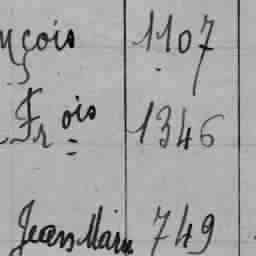 nçois 1107
Frois 1346
Jean Marie 749